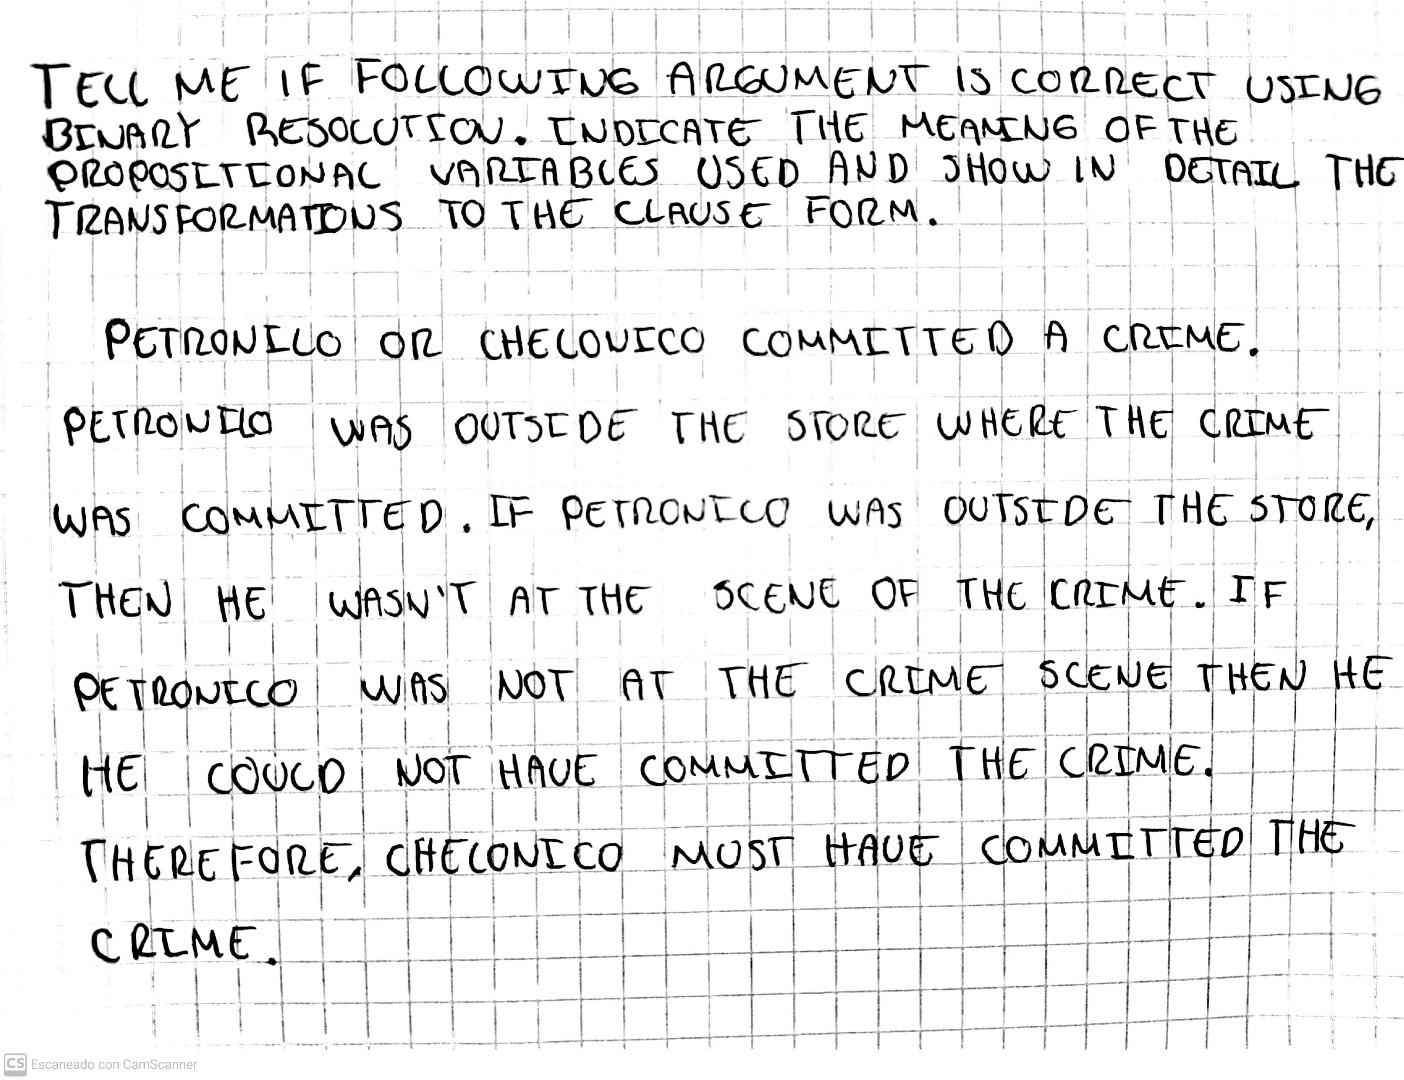 TELL ME IF FOLLOWING ARGUMENT IS CORRECT USING
BINARY RESOLUTION. INDICATE THE MEANING OF THE
PROPOSITIONAL VARIABLES USED AND SHOW IN DETAIL THE
TRANSFORMATIONS TO THE CLAUSE FORM.
PETRONILO OR CHELONICO COMMITTED A CRIME.
PETRONILO WAS OUTSIDE THE STORE WHERE THE CRIME
WAS COMMITTED. IF PETRONICO WAS OUTSIDE THE STORE,
THEN HE WASN'T AT THE SCENE OF THE CRIME. IF
PETRONICO WAS NOT AT THE CRIME SCENE THEN HE
HE COULD NOT HAVE COMMITTED THE CRIME.
THEREFORE, CHELONICO MUST HAVE COMMITTED THE
CRIME.
CS Escaneado con CamScanner